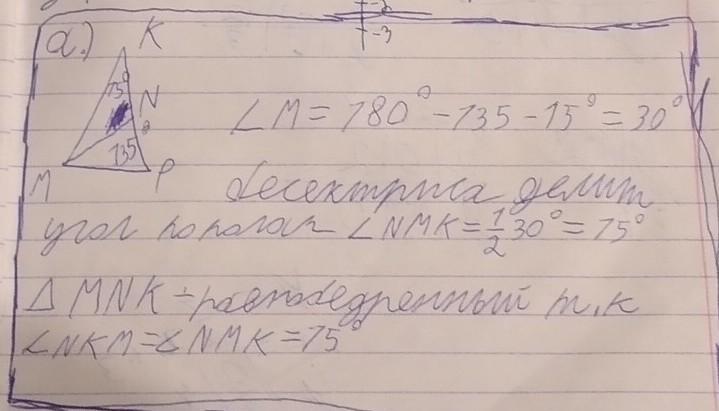 -2
-3
а.)
K
15°
N
135°
M
P
∠M = 180° - 135 - 15° = 30°
бесектриса делит
угол пополам ∠NMK = 1/2 30° = 15°
△ MNK - равнобедренный т.к
∠NKM = ∠NMK = 15°